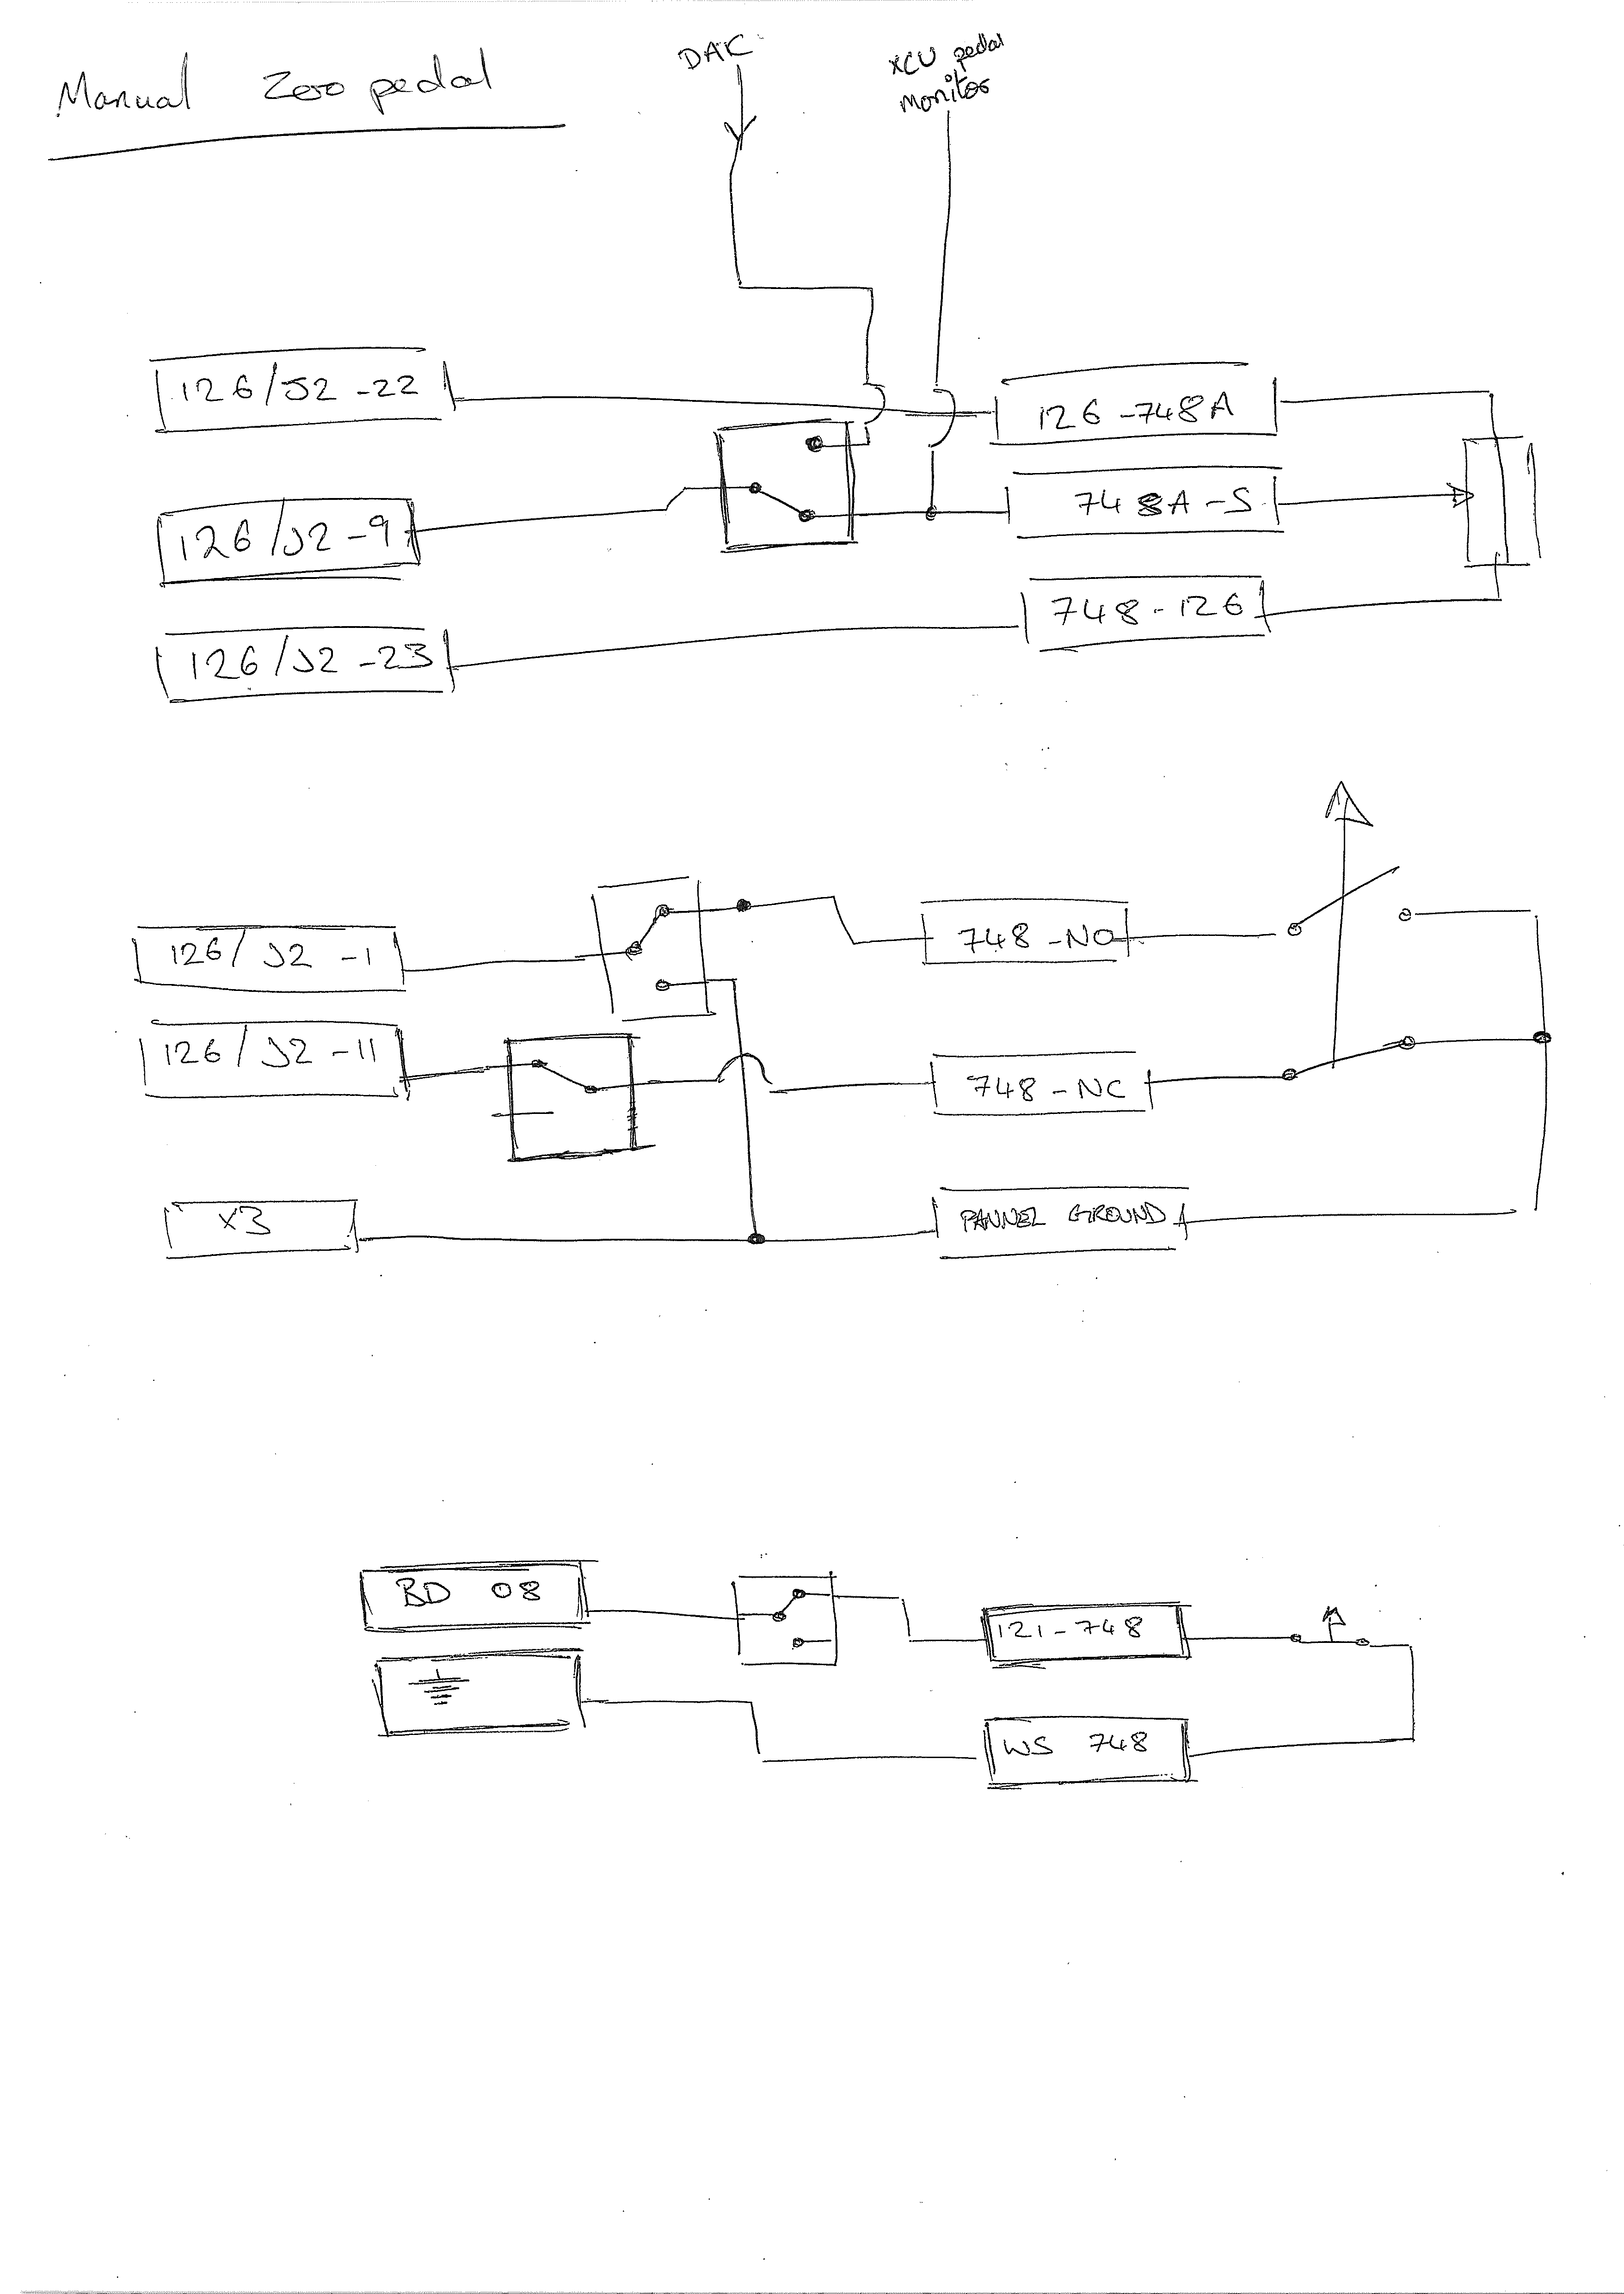 Manual Zero pedal
DAC
XCU pedal
Monitor
126/J2 -22
126 -748A
126/J2 -9
748A -S
748 - 126
126/J2 -23
126/ J2 -1
748 -NO
126/ J2 -11
748 - NC
X3
PANNEL GROUND
BD 08
121-748
WS 748